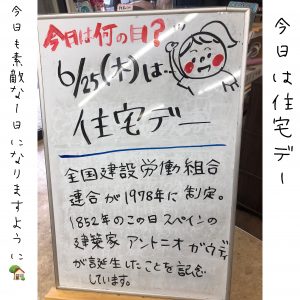 今日は住宅デー
今日は何の日？
6/25(木)は…
住宅デー
全国建設労働組合
連合が1978年に制定。
1852年のこの日スペインの
建築家アントニオガウディ
が誕生したことを記念
しています。
今日も素敵な1日になりますように🏡